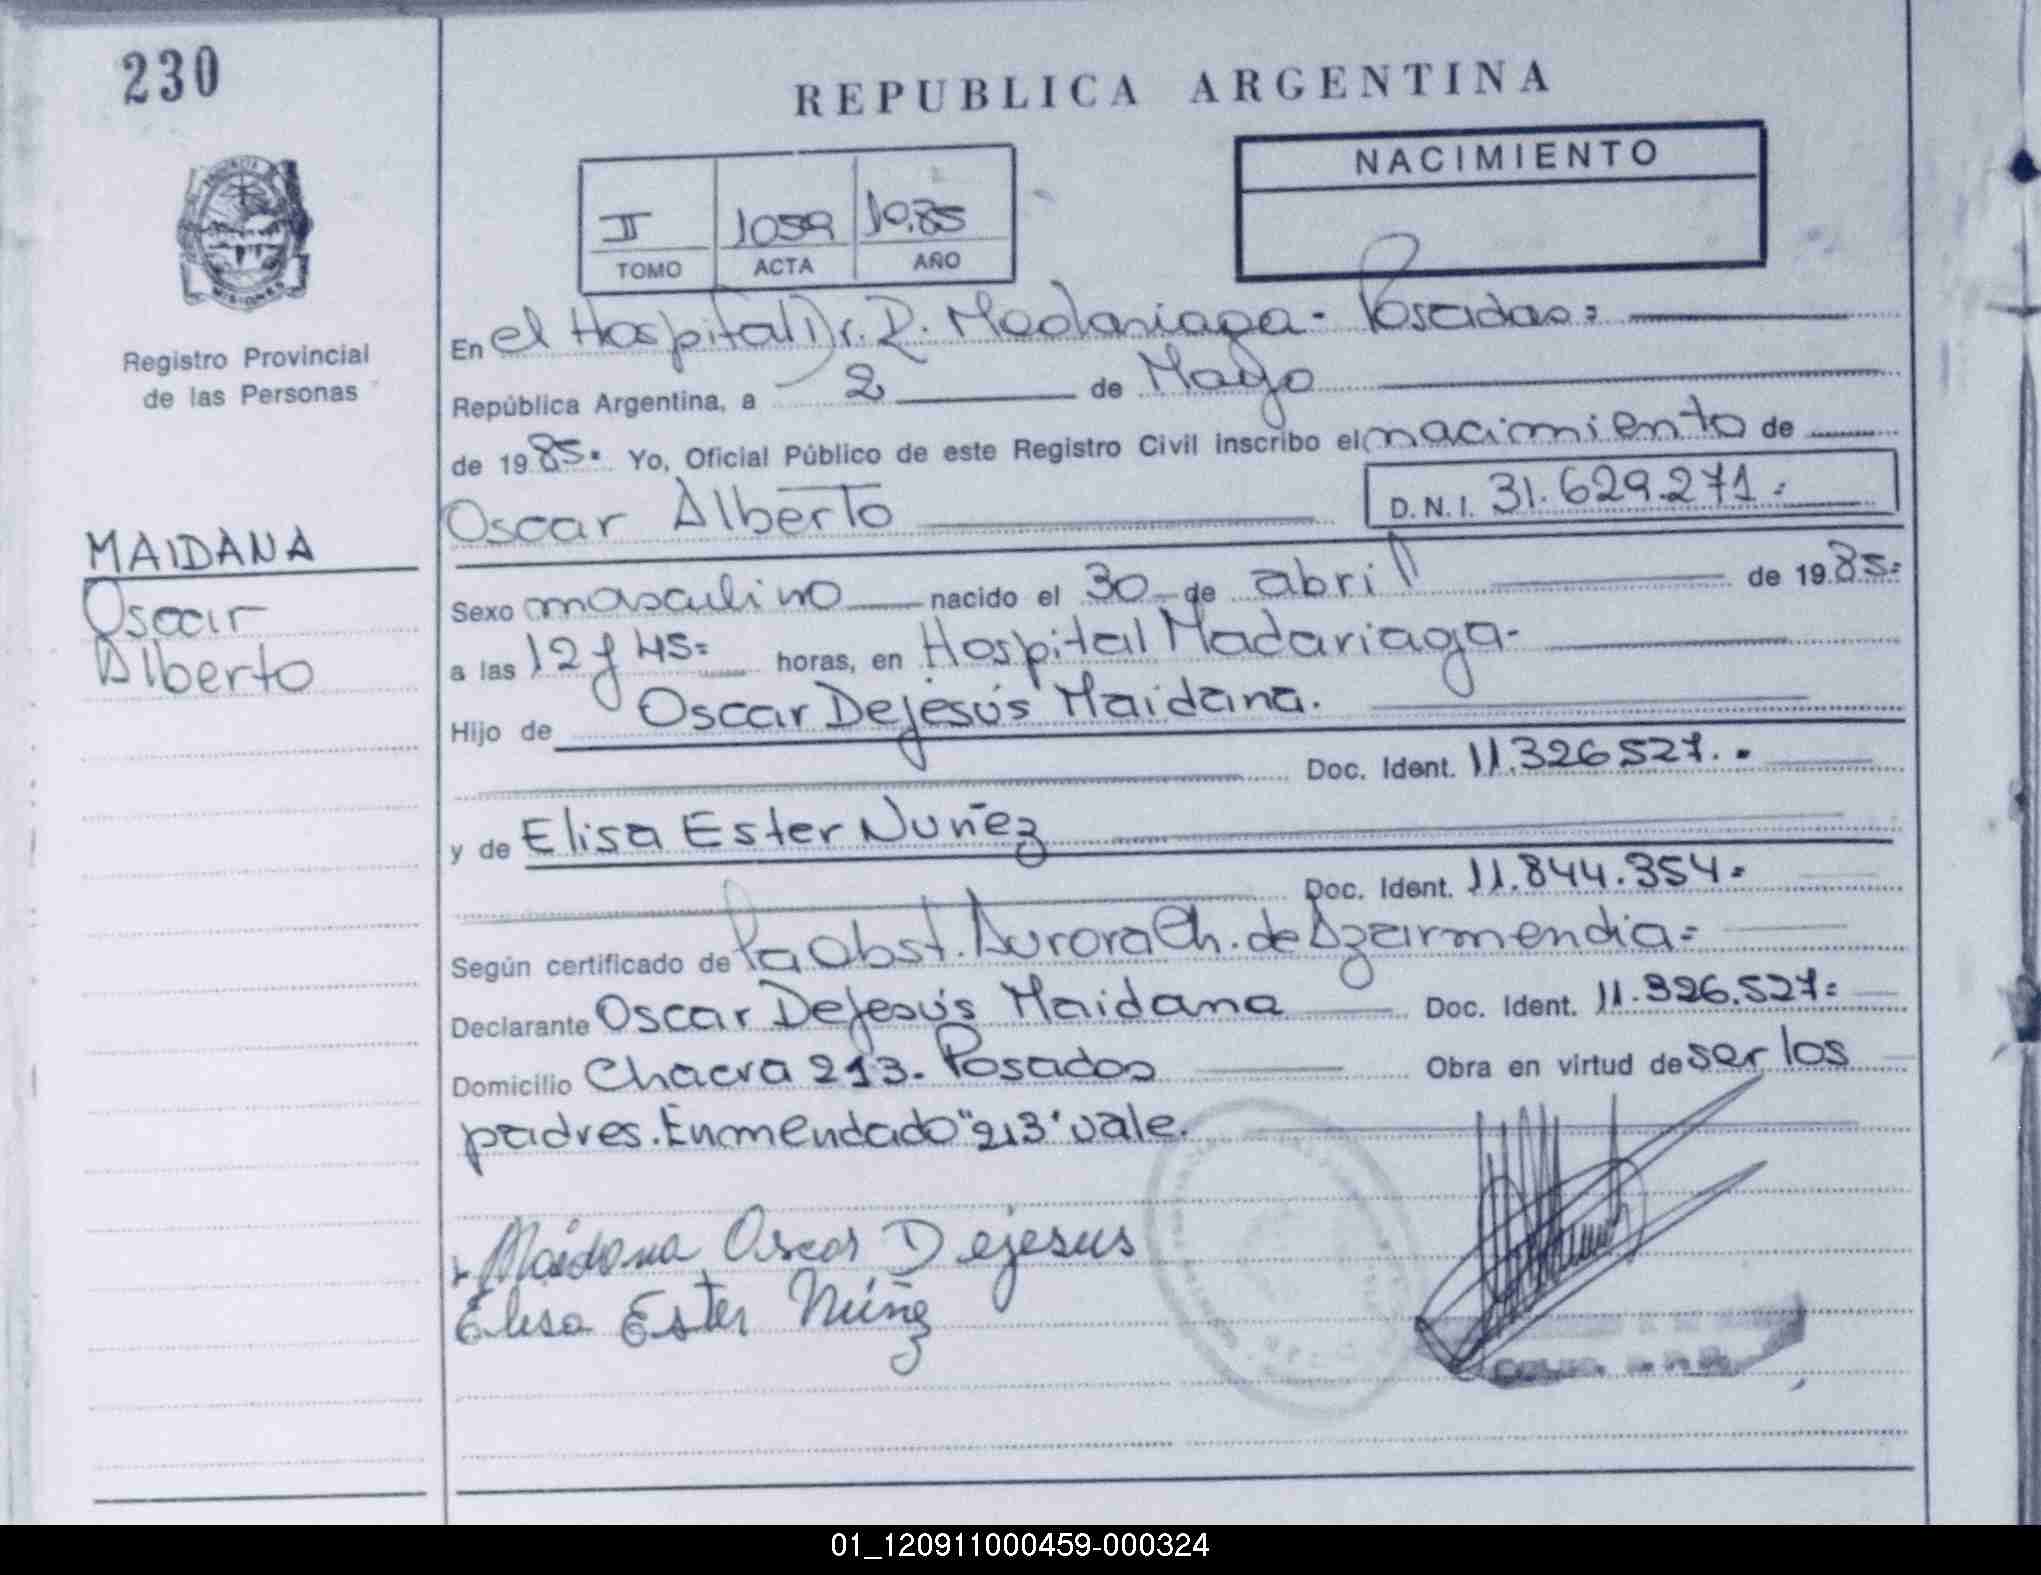 230
REPUBLICA ARGENTINA
NACIMIENTO
II 1059 1985
TOMO ACTA AÑO
MISIONES
Registro Provincial
de las Personas
MAIDANA
Oscar
Alberto
En el Hospital Dr. R. Madariaga - Posadas=
República Argentina, a 2 de Mayo
de 1985. Yo, Oficial Público de este Registro Civil inscribo el nacimiento de
Oscar Alberto D.N.I. 31.629.271.=
Sexo masculino nacido el 30 de abril de 1985=
a las 12 y 45= horas, en Hospital Madariaga-
Hijo de Oscar Dejesús Maidana.
Doc. Ident. 11.326527..
y de Elisa Ester Nuñez
Doc. Ident. 11.844.354=
Según certificado de la Obst. Aurora Ch. de Azarmendia=
Declarante Oscar Dejesús Maidana Doc. Ident. 11.326.527=
Domicilio Chacra 213. Posadas Obra en virtud de ser los
padres. Enmendado "213" vale.
Maidana Oscar Dejesus
Elisa Ester Núñez
01_120911000459-000324